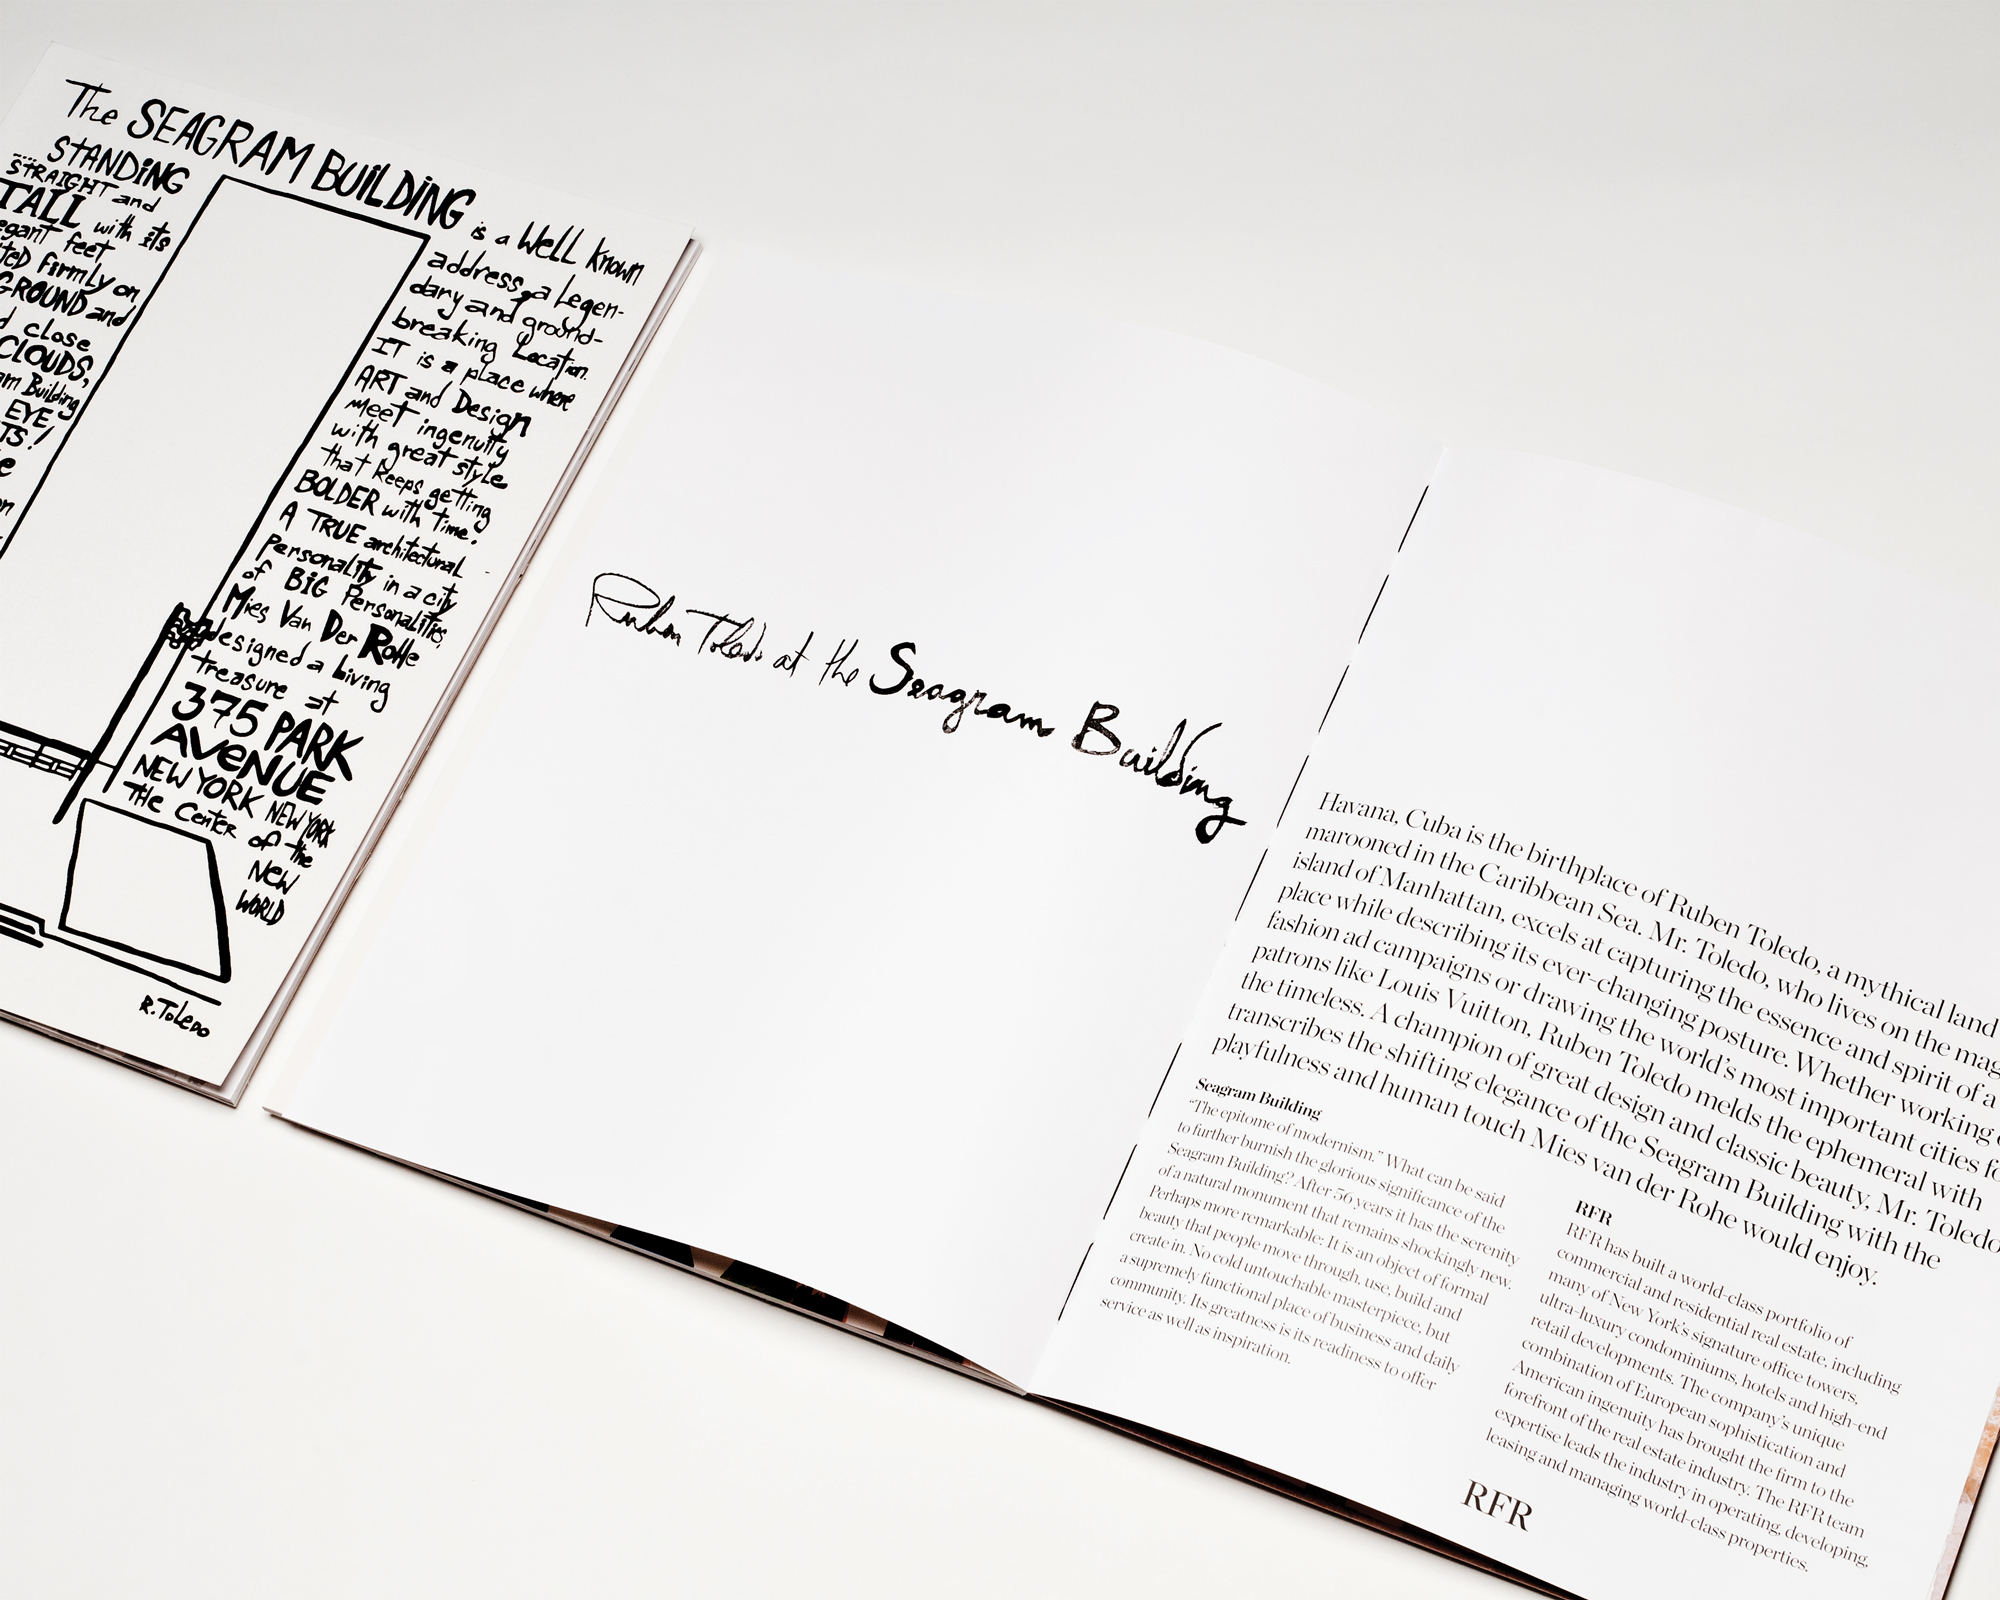 The SEAGRAM BUILDING is a WELL known
STANDING
STRAIGHT and
TALL with its
feet
firmly on
GROUND and
close
CLOUDS,
Building
EYE
address, a Legen-
dary and ground-
breaking Location.
IT is a place where
ART and Design
Meet ingenuity
with great style
that keeps getting
BOLDER with time.
A TRUE architectural
Personality in a city
of BIG Personalities,
Mies Van Der Rohe
designed a Living
treasure at
375 PARK
AVENUE
NEW YORK NEW YORK
THe Center of the
NEW
WORLD
R.ToLeDo
Ruben Toledo at the Seagram Building
Havana, Cuba is the birthplace of Ruben Toledo, a mythical land
marooned in the Caribbean Sea. Mr. Toledo, who lives on the
island of Manhattan, excels at capturing the essence and spirit of a
place while describing its ever-changing posture. Whether working
fashion ad campaigns or drawing the world's most important cities
patrons like Louis Vuitton, Ruben Toledo melds the ephemeral with
the timeless. A champion of great design and classic beauty, Mr. Toledo
transcribes the shifting elegance of the Seagram Building with the
playfulness and human touch Mies van der Rohe would enjoy.
Seagram Building
"The epitome of modernism." What can be said
to further burnish the glorious significance of the
Seagram Building? After 56 years it has the serenity
of a natural monument that remains shockingly new.
Perhaps more remarkable: It is an object of formal
beauty that people move through, use, build and
create in. No cold untouchable masterpiece, but
a supremely functional place of business and daily
community. Its greatness is its readiness to offer
service as well as inspiration.
RFR
RFR has built a world-class portfolio of
commercial and residential real estate, including
many of New York's signature office towers,
ultra-luxury condominiums, hotels and high-end
retail developments. The company's unique
combination of European sophistication and
American ingenuity has brought the firm to the
forefront of the real estate industry. The RFR team
expertise leads the industry in operating, developing,
leasing and managing world-class properties.
RFR